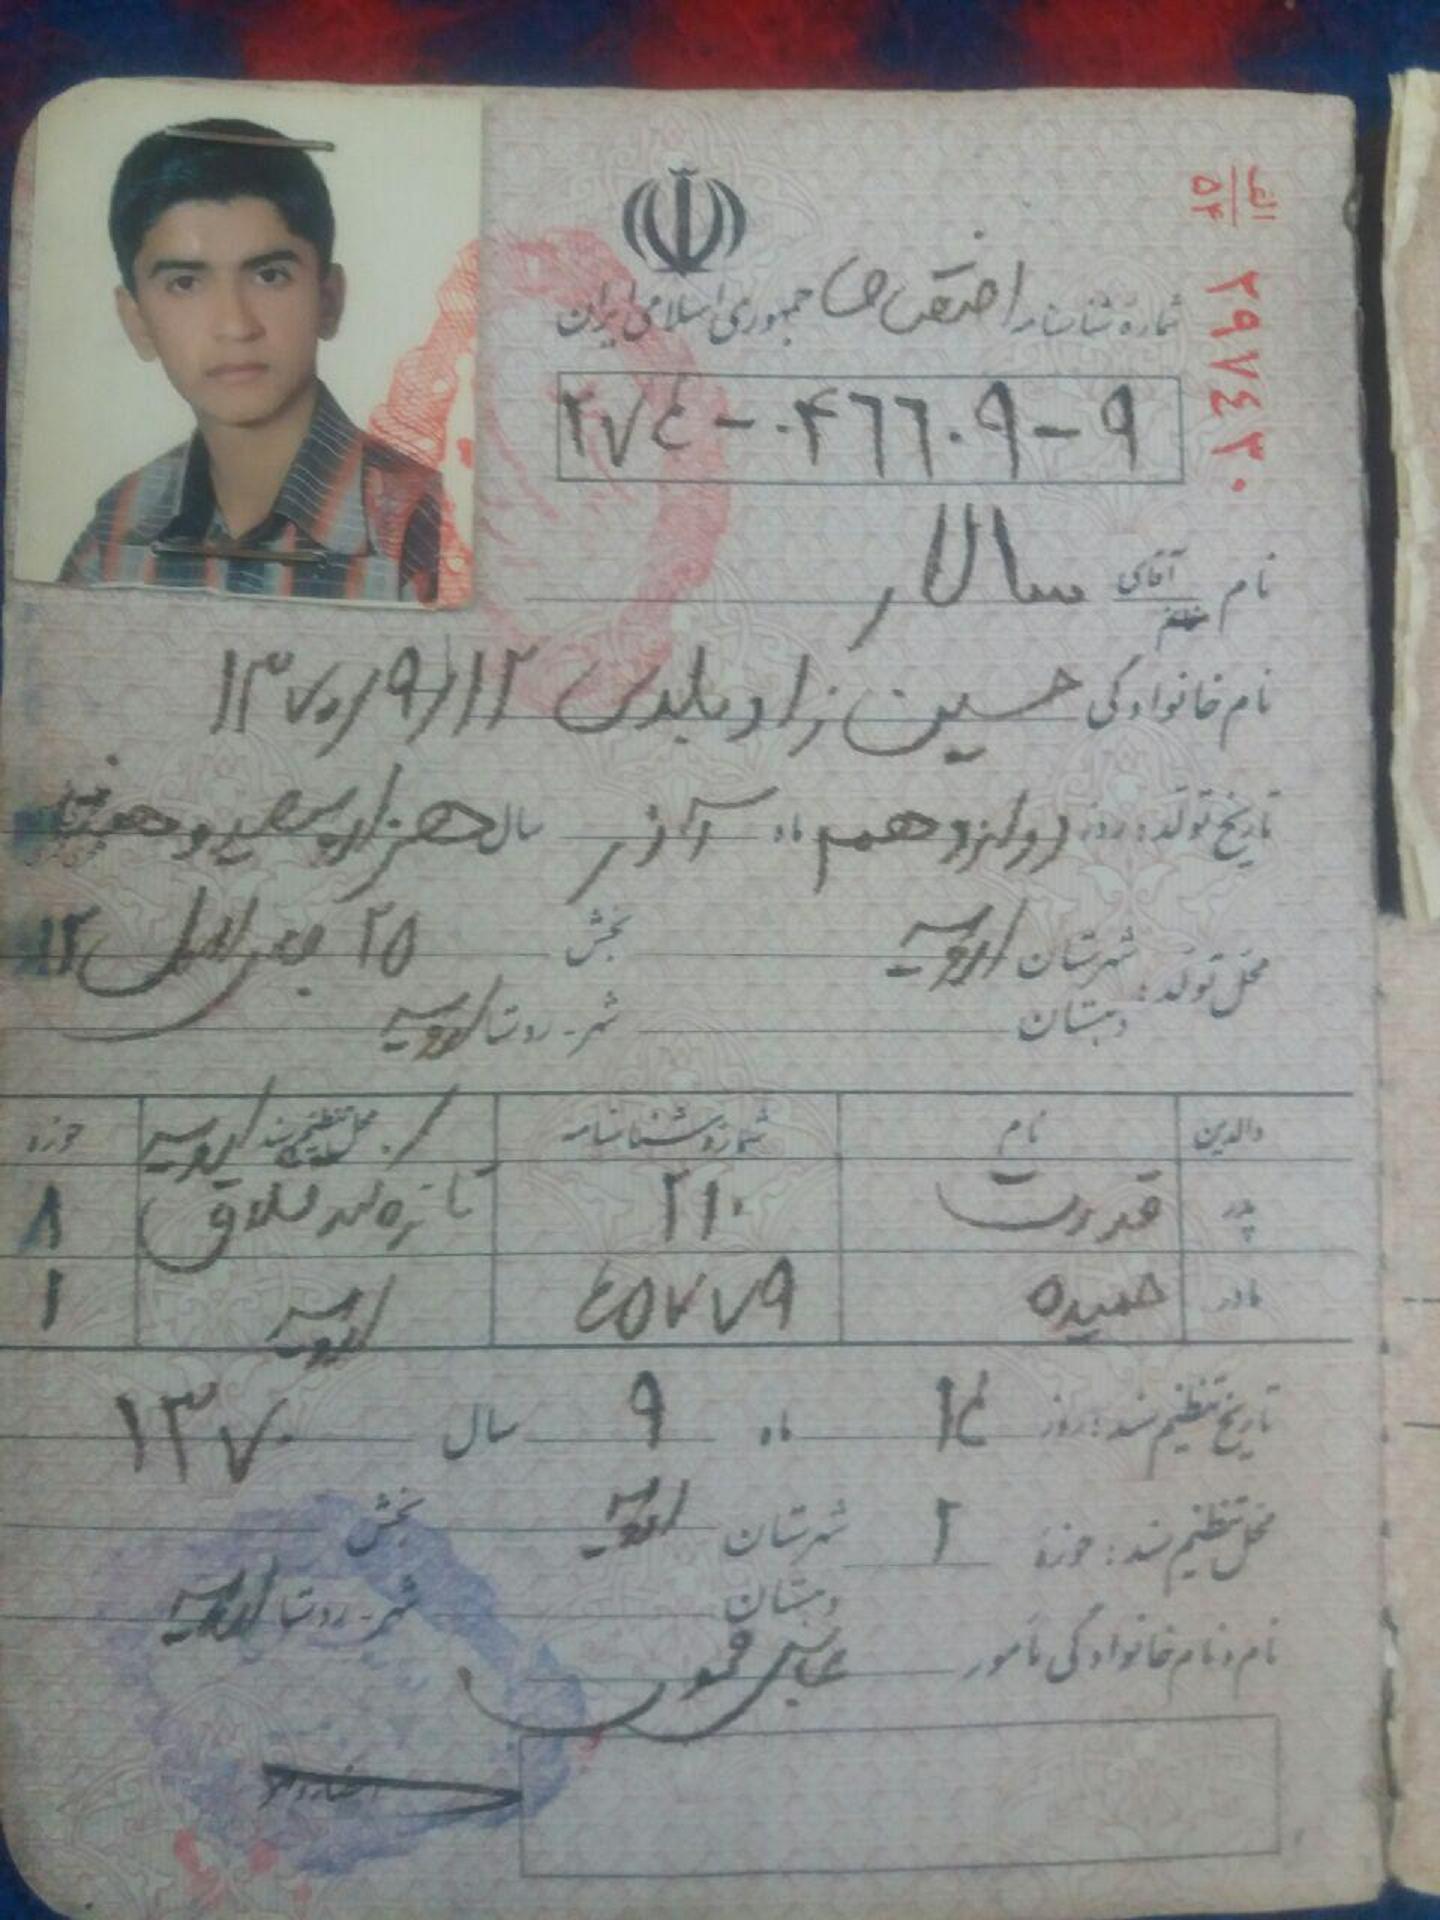 الف
۵۴
۲۹۷۴۳۰
شماره شناسنامه اختصاصی جمهوری اسلامی ایران
۲۷۴-۰۴۶۶۰۹-۹
نام آقای سالار
خانم
نام خانوادگی حسین زاد بلدی ۱۳۷۰/۹/۱۲
تاریخ تولد: روز دوازدهم ماه آذر سال هزار و سیصد و هفتاد
محل تولد: شهرستان ارومیه بخش ۲۵ جمادی الاول ۱۲
دهستان شهر - روستا ارومیه
والدین نام شماره شناسنامه محل تنظیم سند ارومیه حوزه
پدر قدرت ۲۱۰ ۸
مادر حمیده ۴۵۷۷۹ ارومیه ۱
تاریخ تنظیم سند: روز ۱۴ ماه ۹ سال ۱۳۷۰
محل تنظیم سند: حوزه ۲ شهرستان ارومیه بخش
دهستان شهر - روستا ارومیه
نام و نام خانوادگی مأمور عباس